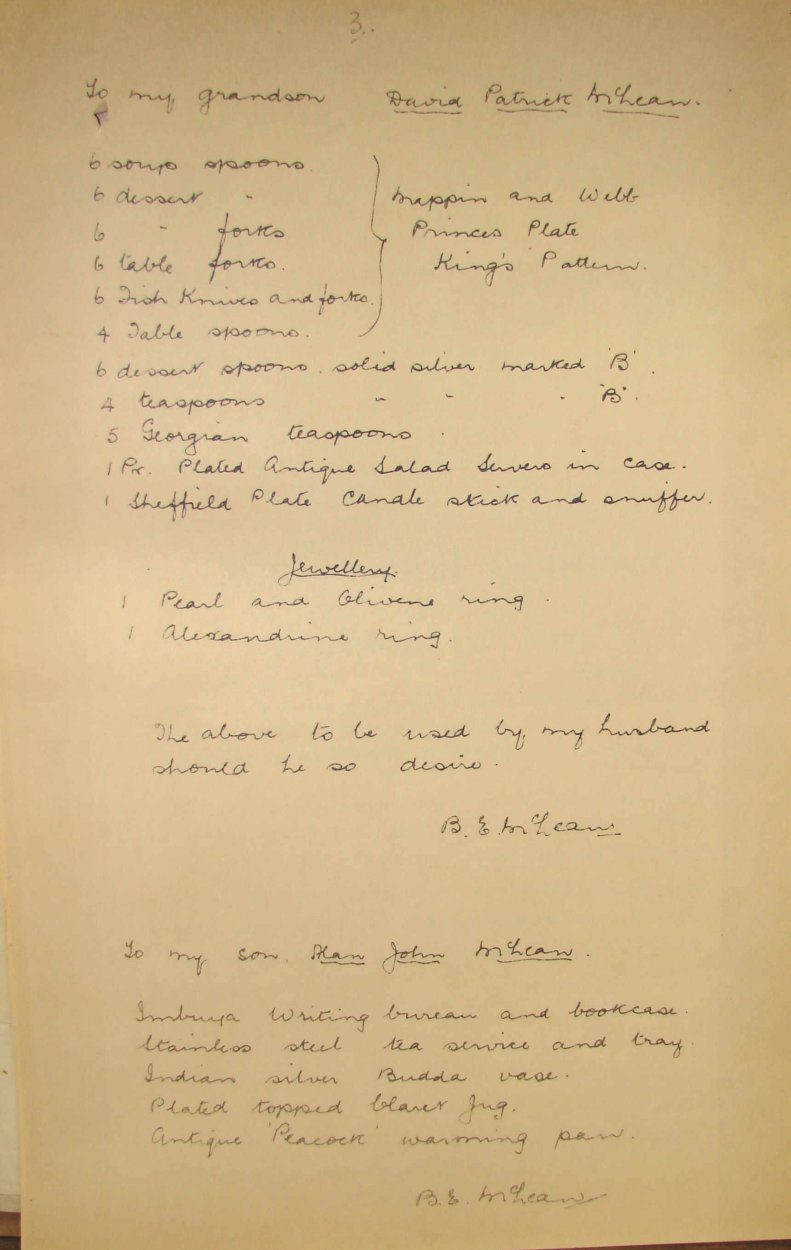 3.
To my grandson David Patrick McLean.
6 soup spoons.
6 dessert " Mappin and Webb
6 " forks Princes Plate
6 table forks. King's Pattern.
6 Fish Knives and forks.
4 Table spoons.
6 dessert spoons. solid silver marked 'B'.
4 teaspoons " " " 'B'.
5 Georgian teaspoons.
1 Pr. Plated Antique Salad Servers in case.
1 Sheffield Plate Candle stick and snuffer.
Jewellery.
1 Pearl and Olivene ring.
1 Alexandrine ring.
The above to be used by my husband
should he so desire.
B. E. McLean.
To my son, Alan John McLean.
Imbuya Writing bureau and bookcase.
Stainless steel tea service and tray.
Indian silver Budda vase.
Plated topped Claret Jug.
Antique 'Peacock' warming pan.
B. E. McLean